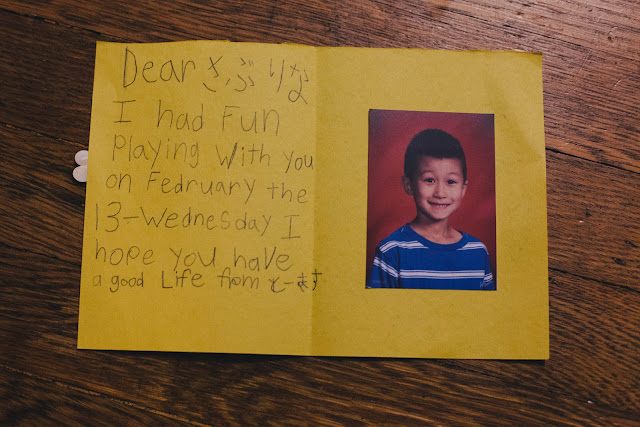 Dear さぶりな
I had Fun
Playing With you
on Fedruary the
13-Wednesday I
hope you have
a good Life from とーます